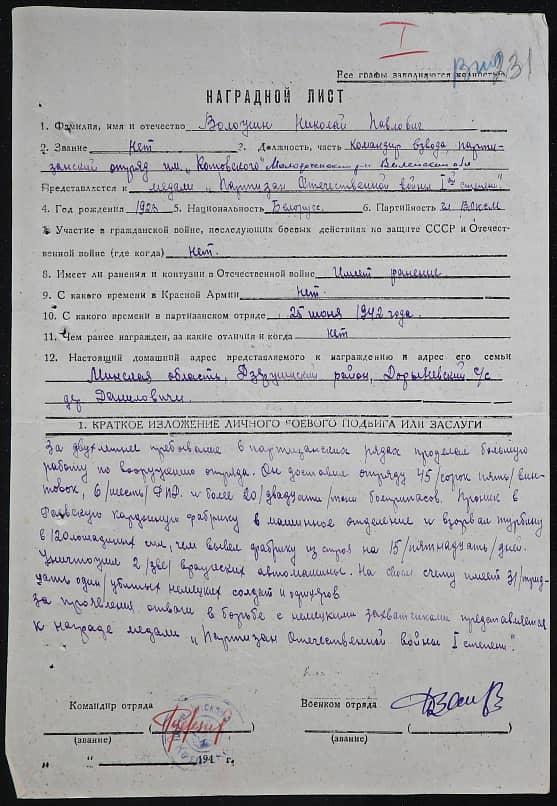 I
231
Все графы заполняются полностью
НАГРАДНОЙ ЛИСТ
1. Фамилия, имя и отчество Николай Павлович
2. Звание Нет 2. Должность, часть командир взвода, парти-
занский отряд им. "Котовского"
Представляется к медали „Партизан Отечественной войны I ой степени".
4. Год рождения 1923 5. Национальность Белорусс. 6. Партийность чл ВЛКСМ
7. Участие в гражданской войне, последующих боевых действиях по защите СССР и Отечест-
венной войне (где когда) нет.
8. Имеет ли ранения и контузии в Отечественной войне Имеет ранение.
9. С какого времени в Красной Армии Нет.
10. С какого времени в партизанском отряде 25 июня 1942 года.
11. Чем ранее награжден, за какие отличия и когда нет
12. Настоящий домашний адрес представляемого к награждению и адрес его семьи
Минская область, Дзержинский район, с/с
дер Даниловичи.
1. КРАТКОЕ ИЗЛОЖЕНИЕ ЛИЧНОГО БОЕВОГО ПОДВИГА ИЛИ ЗАСЛУГИ
За двухлетнее пребывание в партизанских рядах проделал большую
работу по вооружению отряда. Он доставил отряду 45 /сорок пять/ вин-
товок, 6 /шесть/ и более 20 /двадцати/ боеприпасов. Проник в
картонную фабрику в машинное отделение и взорвал турбину
в 120 лошадиных сил, чем вывел фабрику из строя на 15 /пятнадцать/ дней.
Уничтожил 2 /две/ вражеских автомашины. На своем счету имеет 31 /трид-
цать один/ убитых немецких солдат и офицеров
За проявления отваги в борьбе с немецкими захватчиками представляется
к награде медали „Партизан Отечественной войны I степени".
Командир отряда Военком отряда
(звание) (звание)
„ “ 194 г.